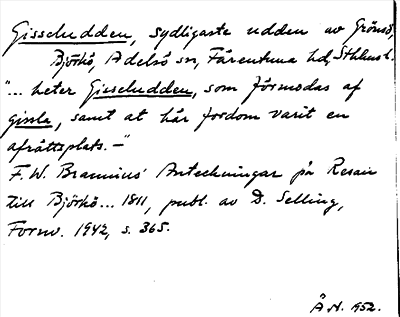 Gisseludden, sydligaste udden av Grönsö,
Björkö, Adelsö sn, Färentuna hd, Sthlms l.
"... heter Gisseludden, som förmodas af
gissla, samt at här fordom varit en
afrättsplats.–"
F. W. Brannius' Anteckningar på Resan
till Björkö... 1811, publ. av D. Selling,
Fornv. 1942, s. 365.
Ä N. 1952.